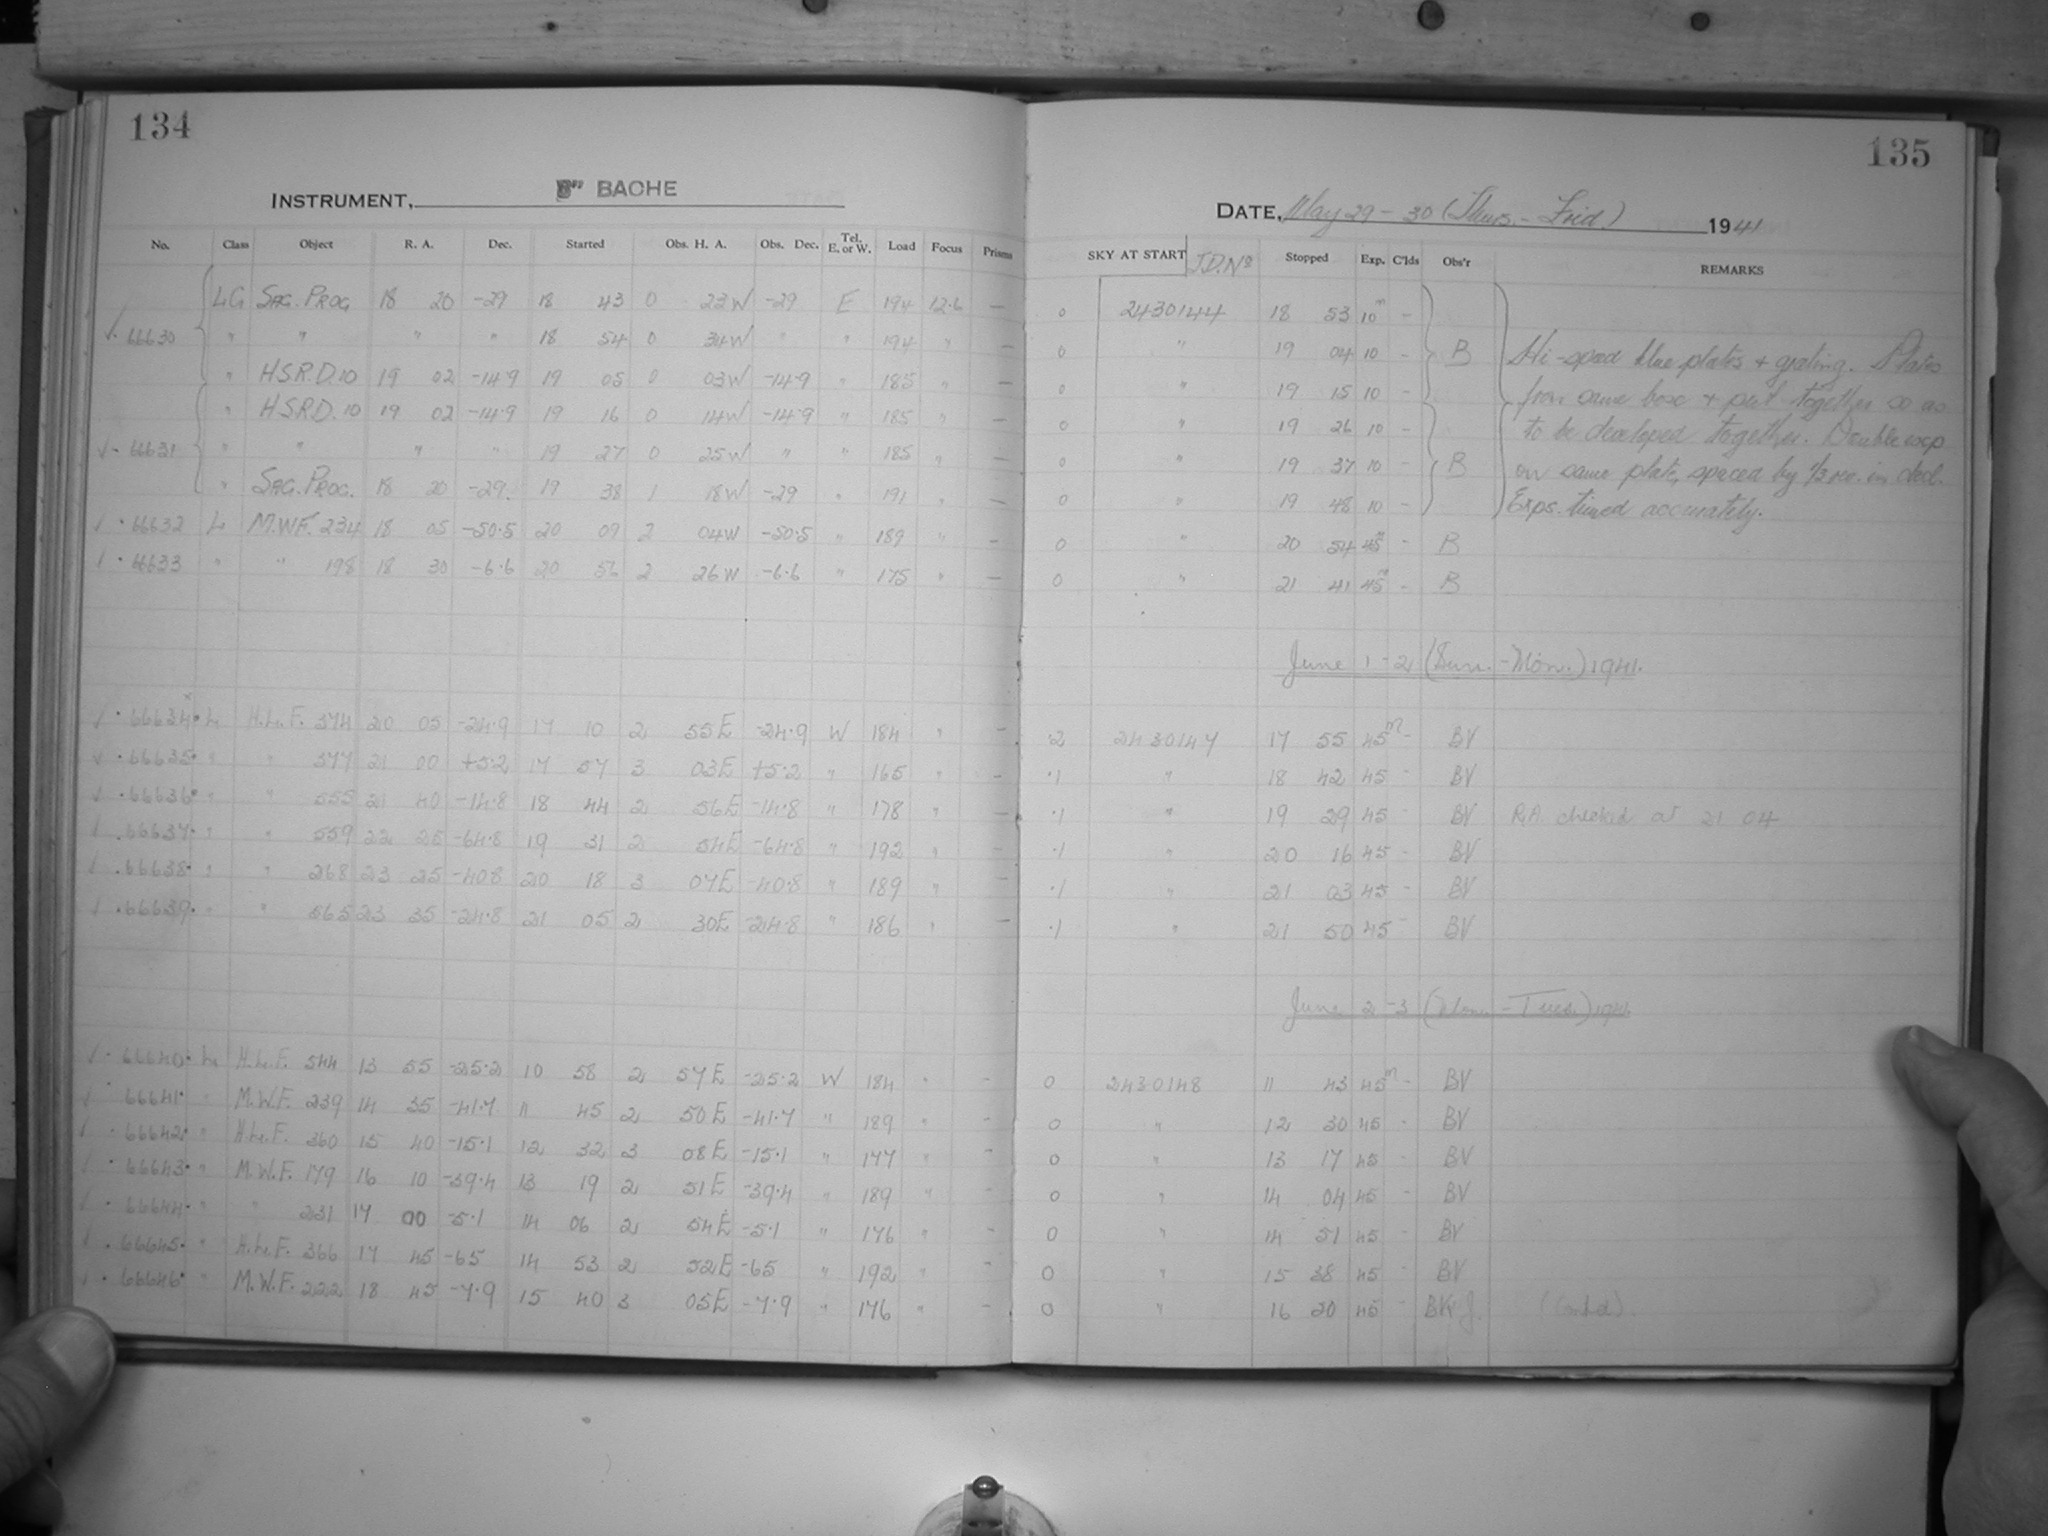 134
135
INSTRUMENT, 8" BACHE
DATE, May 29 - 30 (Thurs. - Frid.) 1941
No. Class Object R. A. Dec. Started Obs. H. A. Obs. Dec. Tel. E. or W. Load Focus Prisms SKY AT START J.D. Nº Stopped Exp. C'lds Obs'r REMARKS
LG SAG. PROG. 18 20 -29 18 43 0 23W -29 E 194 12.6 — 0 2430144 18 53 10m -
✓. 66630 " " " " 18 54 0 34W " " 194 " — 0 " 19 04 10 - B Hi-speed blue plates + grating. Plates
" H.S.R.D. 10 19 02 -14.9 19 05 0 03W -14.9 " 185 " — 0 " 19 15 10 - from same box + put together so as
" H.S.R.D. 10 19 02 -14.9 19 16 0 14W -14.9 " 185 " — 0 " 19 26 10 - to be developed together. Double exp
✓. 66631 " " " " 19 27 0 25W " " 185 " — 0 " 19 37 10 - B on same plate, spaced by in decl.
" SAG. PROG. 18 20 -29. 19 38 1 18W -29 " 191 " — 0 " 19 48 10 - Exps. timed accurately.
✓ . 66632 L M.W.F. 234 18 05 -50.5 20 09 2 04W -50.5 " 189 " — 0 " 20 54 45m - B
✓ . 66633 " " 198 18 30 -6.6 20 56 2 26W -6.6 " 175 " — 0 " 21 41 45m - B
June 1-2 (Sun. - Mon.) 1941.
✓ . 66634 L H.L.F. 374 20 05 -24.9 17 10 2 55E -24.9 W 184 " — .2 2430147 17 55 45m - BV
✓ . 66635 " " 377 21 00 +5.2 17 57 3 03E +5.2 " 165 " — .1 " 18 42 45 - BV
✓ . 66636 " " 555 21 40 -14.8 18 44 2 56E -14.8 " 178 " — .1 " 19 29 45 - BV R.A. checked at 21 04
✓ . 66637 " " 559 22 25 -64.8 19 31 2 54E -64.8 " 192 " — .1 " 20 16 45 - BV
✓ . 66638 " " 268 23 25 -40.8 20 18 3 07E -40.8 " 189 " — .1 " 21 03 45 - BV
✓ . 66639 " " 565 23 35 -24.8 21 05 2 30E -24.8 " 186 " — .1 " 21 50 45 - BV
June 2-3 (Mon. - Tues.) 1941.
✓ . 66640 L H.L.F. 544 13 55 -25.2 10 58 2 57E -25.2 W 184 " — 0 2430148 11 43 45m - BV
✓ 66641 " M.W.F. 239 14 35 -41.7 11 45 2 50E -41.7 " 189 " — 0 " 12 30 45 - BV
✓ . 66642 " H.L.F. 360 15 40 -15.1 12 32 3 08E -15.1 " 177 " — 0 " 13 17 45 - BV
✓ . 66643 " M.W.F. 179 16 10 -39.4 13 19 2 51E -39.4 " 189 " — 0 " 14 04 45 - BV
✓ . 66644 " " 231 17 00 -5.1 14 06 2 54E -5.1 " 176 " — 0 " 14 51 45 - BV
✓ . 66645 " H.L.F. 366 17 45 -65 14 53 2 52E -65 " 192 " — 0 " 15 38 45 - BV
✓ . 66646 " M.W.F. 222 18 45 -7.9 15 40 3 05E -7.9 " 176 " — 0 " 16 20 45 - (Contd.)